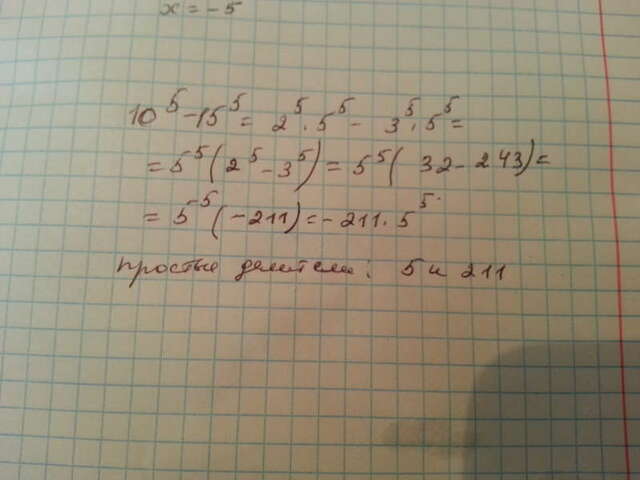 x = -5
10⁵ - 15⁵ = 2⁵ · 5⁵ - 3⁵ · 5⁵ =
= 5⁵ (2⁵ - 3⁵) = 5⁵ ( 32 - 243) =
= 5⁵ (-211) = - 211 · 5⁵
простые делители: 5 и 211